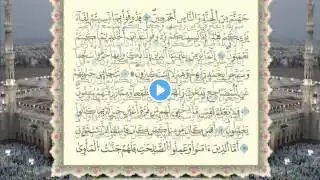 جَهَنَّمَ مِنَ الْجِنَّةِ وَالنَّاسِ أَجْمَعِينَ فَذُوقُوا بِمَا نَسِيتُمْ لِقَاءَ
يَوْمِكُمْ هَٰذَا إِنَّا نَسِينَٰكُمْ وَذُوقُوا عَذَابَ الْخُلْدِ بِمَا كُنتُمْ
تَعْمَلُونَ إِنَّمَا يُؤْمِنُ بِـَٔايَٰتِنَا الَّذِينَ إِذَا ذُكِّرُوا بِهَا خَرُّوا سُجَّدًا
وَسَبَّحُوا بِحَمْدِ رَبِّهِمْ وَهُمْ لَا يَسْتَكْبِرُونَ تَتَجَافَىٰ جُنُوبُهُمْ
عَنِ الْمَضَاجِعِ يَدْعُونَ خَوْفًا وَطَمَعًا وَمِمَّا رَزَقْنَٰهُمْ
يُنفِقُونَ فَلَا تَعْلَمُ نَفْسٌ مَّا أُخْفِيَ لَهُم مِّن قُرَّةِ أَعْيُنٍ جَزَاءً بِمَا كَانُوا
يَعْمَلُونَ أَفَمَن كَانَ مُؤْمِنًا كَمَن كَانَ فَاسِقًا لَّا يَسْتَوُونَ
أَمَّا الَّذِينَ ءَامَنُوا وَعَمِلُوا الصَّٰلِحَٰتِ فَلَهُمْ جَنَّٰتُ الْمَأْوَىٰ